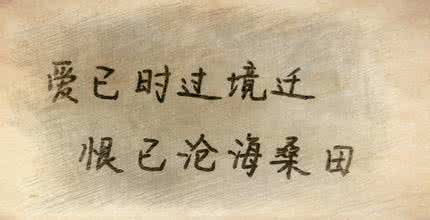 爱已时过境迁
恨已沧海桑田